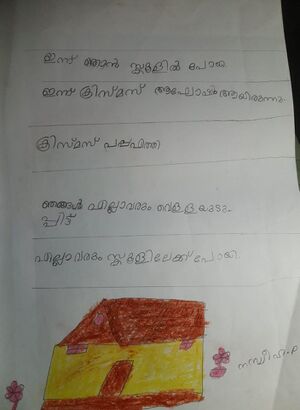 ഇന്ന് ഞാൻ സ്കൂളിൽ പോയി
ഇന്ന് ക്രിസ്മസ് ആഘോഷം ആയിരുന്നു.
ക്രിസ്മസ് പപ്പ എത്തി
ഞങ്ങൾ എല്ലാവരും വെള്ളയുടു-
പ്പിട്ട്
എല്ലാവരും സ്കൂളിലേക്ക് പോയി.